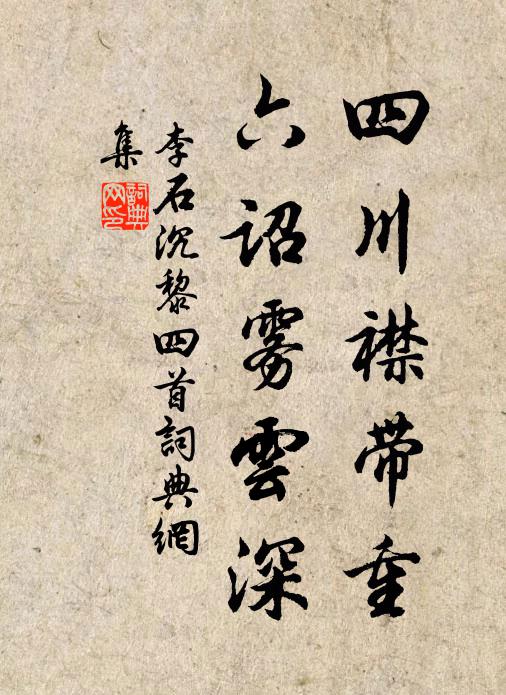 四川襟带重
六詔雾雲深
李石沉黎四首詞典網
集
詞典網印